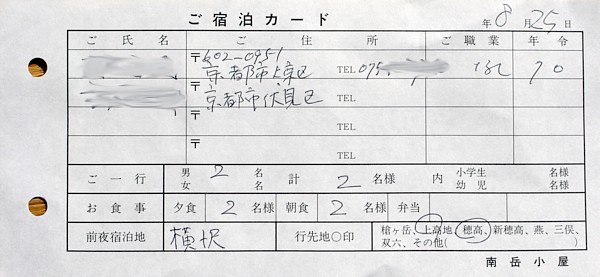 ご宿泊カード 年 8 月 25 日
ご氏名 ご住所 ご職業 年令
〒602-0951
京都市 TEL 075 なし 70
〒
京都市伏見区 TEL
〒 TEL
〒 TEL
ご一行 男 2 名 女 名 計 2 名様 内 小学生 名様 幼児 名様
お食事 夕食 2 名様 朝食 2 名様 弁当 名様
前夜宿泊地 横沢 行先地○印 槍ヶ岳、上高地、穂高、新穂高、燕、三俣、
双六、その他( )
南岳小屋